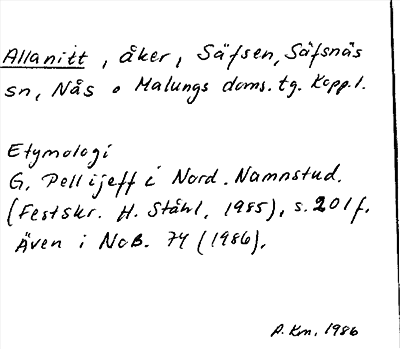 Allanitt, åker, Säfsen, Säfsnäs
sn, Nås o Malungs doms. tg. Kopp. l.
Etymologi
G. Pellijeff i Nord. Namnstud.
(Festskr. H. Ståhl, 1985), s. 201 f.
Även i NoB. 74 (1986).
A. Km. 1986